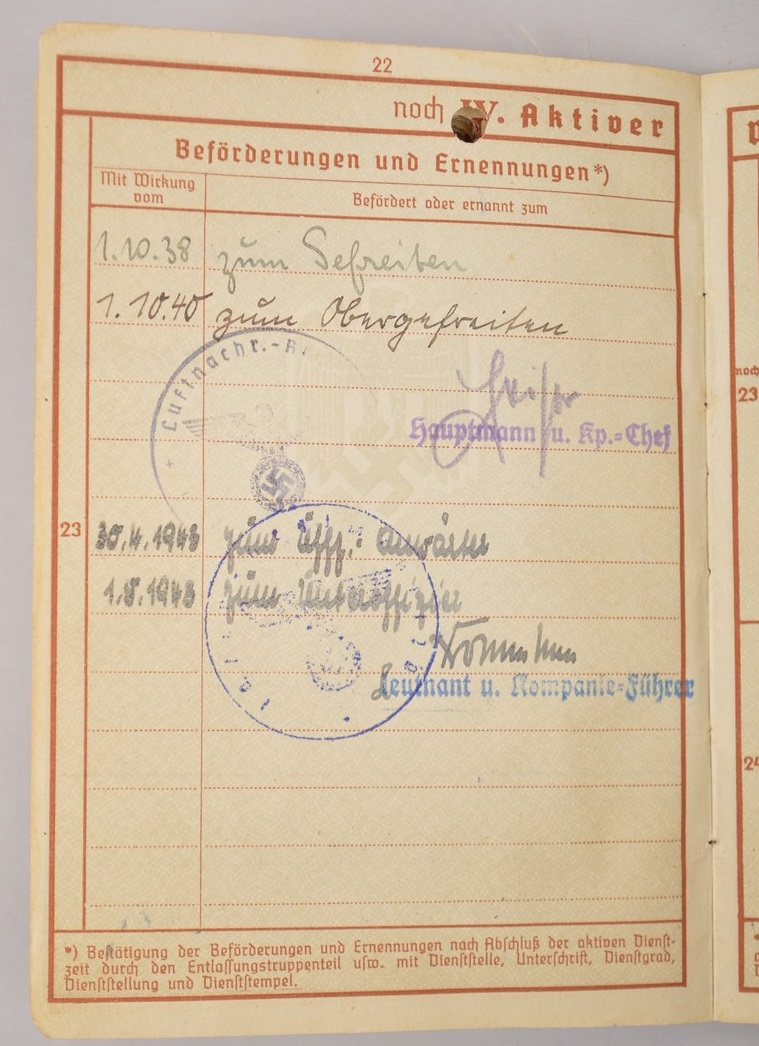 22
noch IV. Aktiver
Beförderungen und Ernennungen*)
Mit Wirkung vom
Befördert oder ernannt zum
1.10.38 zum Gefreiten
1.10.40 zum Obergefreiten
+ Luftnachr.-R
Hauptmann u. Kp.=Chef
23
30.4.1943 zum Uffz.: Anwärter
1.8.1943 zum Unteroffizier
Leutnant u. Kompanie=Führer
*) Bestätigung der Beförderungen und Ernennungen nach Abschluß der aktiven Dienst-
zeit durch den Entlassungstruppenteil usw. mit Dienststelle, Unterschrift, Dienstgrad,
Dienststellung und Dienststempel.
noch
23
24